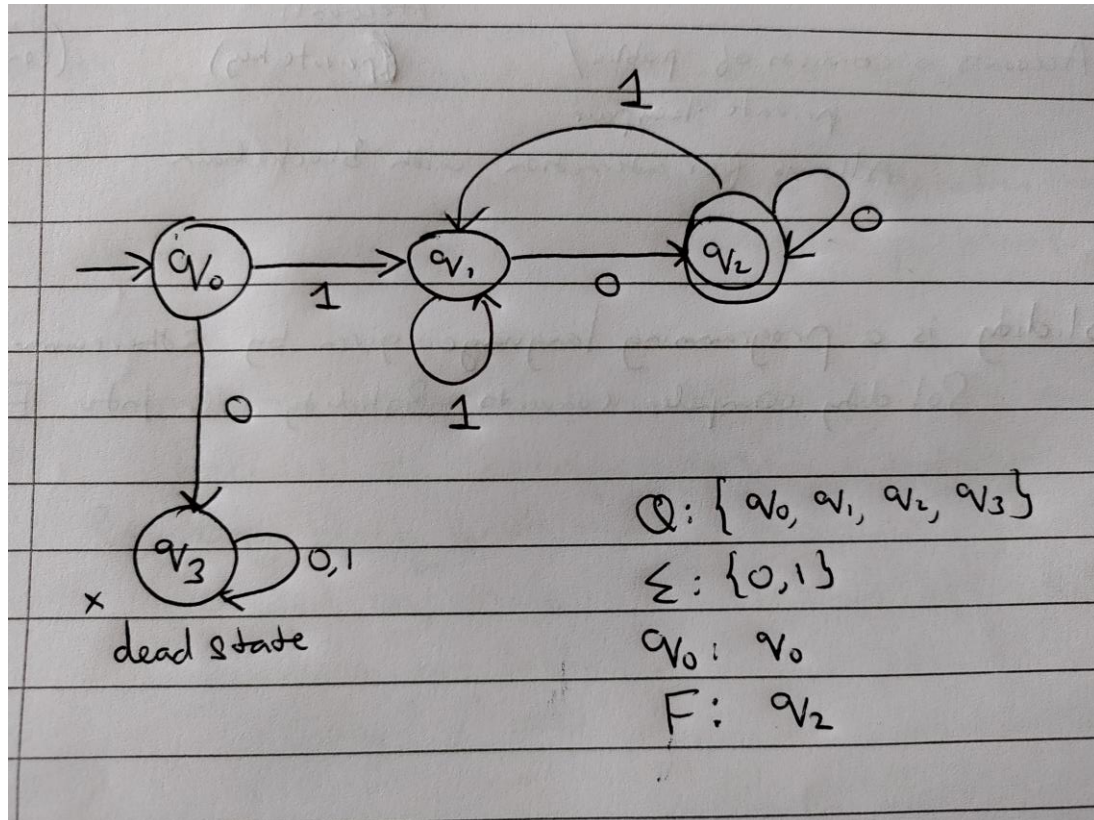 1
q0 1 q1 0 q2 0
1
0
q3 0,1
x
dead state
Q: { q0, q1, q2, q3 }
Σ: {0,1}
q0: q0
F: q2